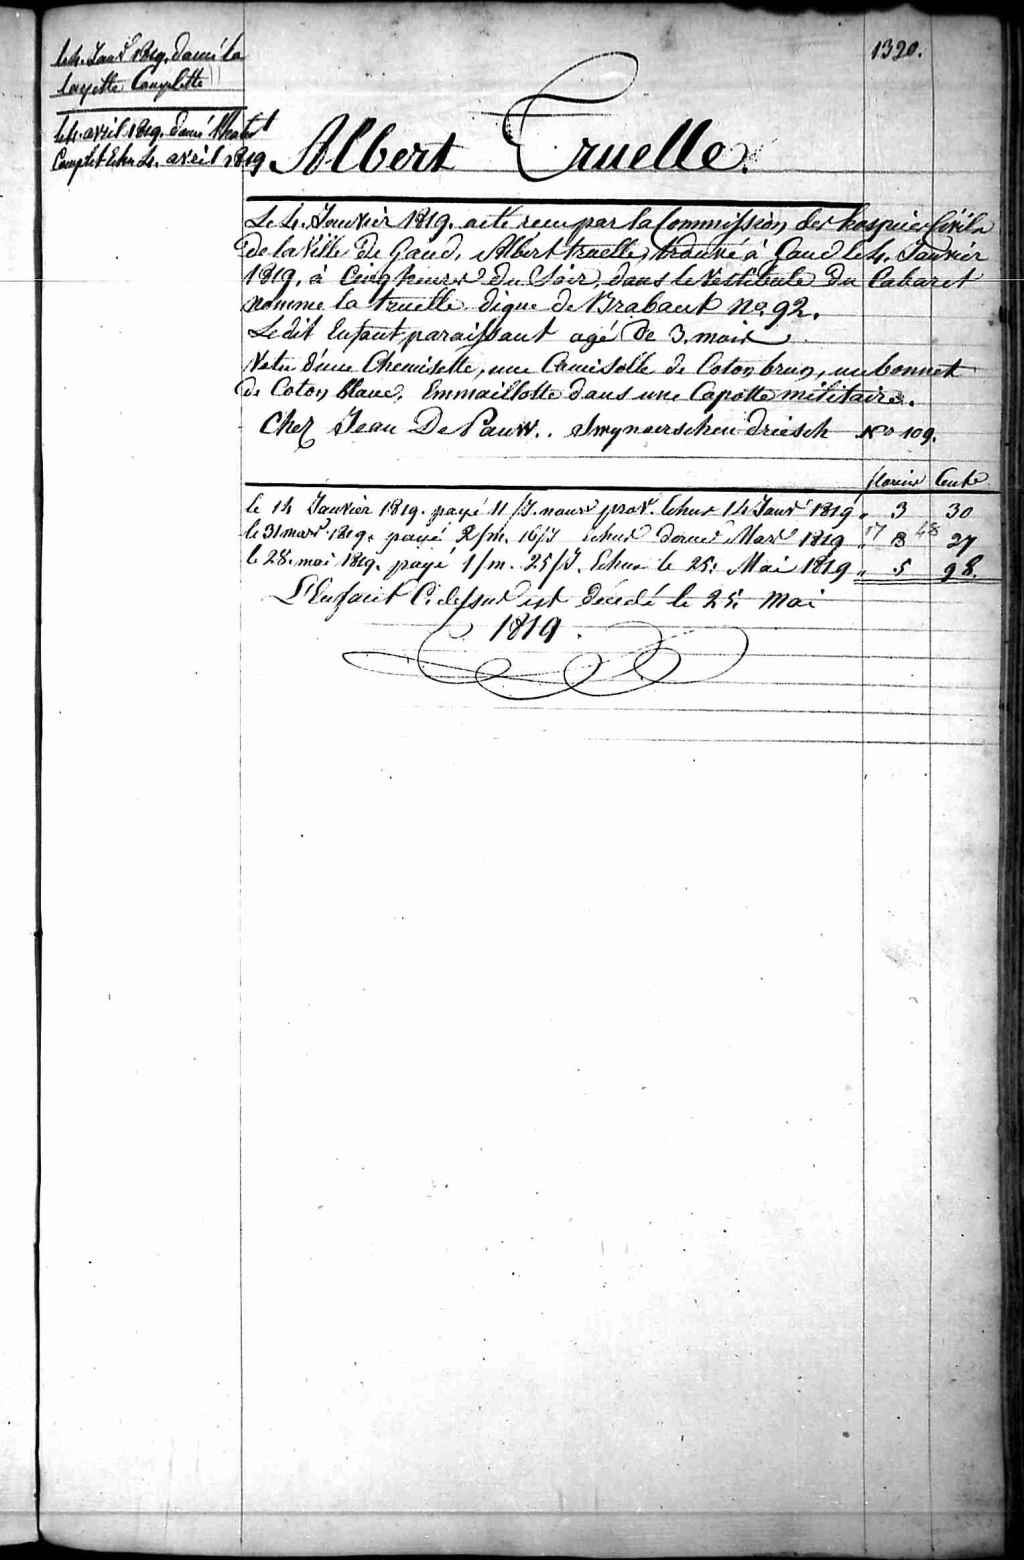 1320.
le 4. Janr 1819. donné la
layette Complette
le 4. avril 1819. donné
Complet Echu 4. avril 1819
Albert Truelle.
Le 4. Janvier 1819. acte recu par la Commission des hospices Civils
de la Ville de Gand, Albert truelle, trouvé à Gand le 4. Janvier
1819. à Cinq heures du Soir, dans le Vestibule du Cabaret
nommé la truelle digue de Brabant No. 92.
Ledit Enfant paraissant agé de 3. mois
Vetu d'une Chemisette, une Camisolle de Coton brun, un bonnet
de Coton blanc, Emmaillotte dans une Capotte militaire.
Chez Jean De Pauw.. Swynaerschen driesch No 109.
florins Cents
le 14 Janvier 1819. payé 11/J. nour prov. Echus 14 Janr 1819 " 3 30
le 31 mars 1819. payé 2/m. 16/J Echus Mars 1819 " 17 8 48 27
le 28. mai 1819. payé 1/m. 25/J. Echus le 25. Mai 1819 " 5 98.
L'Enfant Ci dessus est décédé le 25. Mai
1819.